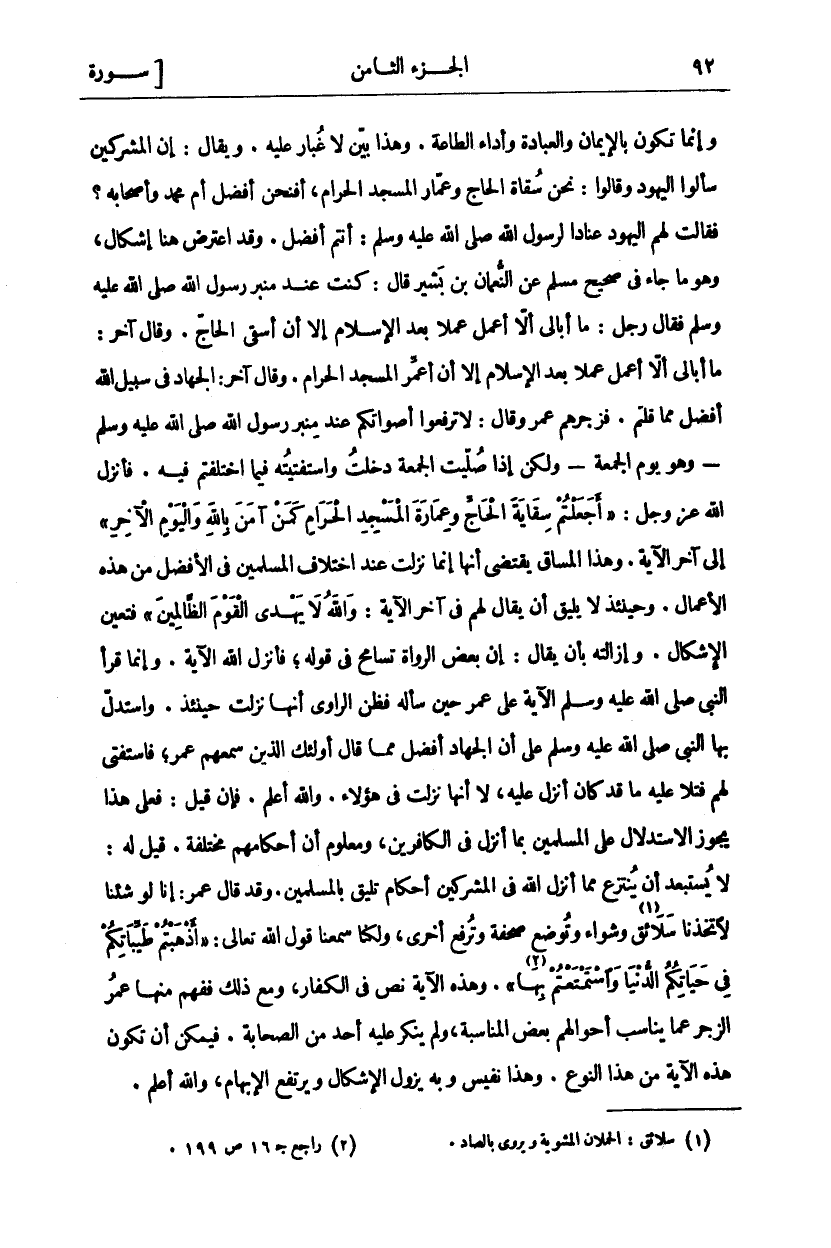 ٩٢ الجـزء الثـامن [ ســورة
وإنما تكون بالإيمان والعبادة وأداء الطاعة . وهذا بيّن لا غُبار عليه . ويقال : إن المشركين
سألوا اليهود وقالوا : نحن سُقاة الحاج وعمّار المسجد الحرام، أفنحن أفضل أم محمد وأصحابه ؟
فقالت لهم اليهود عنادا لرسول الله صلى الله عليه وسلم : أنتم أفضل . وقد اعترض هنا إشكال،
وهو ما جاء فى صحيح مسلم عن النُّعمان بن بَشير قال : كنت عنـد منبر رسول الله صلى الله عليه
وسلم فقال رجل : ما أبالى ألّا أعمل عملا بعد الإسـلام إلا أن أسقى الحاجّ . وقال آخر :
ما أبالى ألّا أعمل عملا بعد الإسلام إلا أن أعمُر المسجد الحرام . وقال آخر: الجهاد فى سبيل الله
أفضل مما قلتم . فزجرهم عمر وقال : لا ترفعوا أصواتكم عند مِنبر رسول الله صلى الله عليه وسلم
– وهو يوم الجمعة – ولكن إذا صُلّيت الجمعة دخلتُ واستفتيتُه فيما اختلفتم فيـه . فأنزل
الله عز وجل : « أَجَعَلْتُمْ سِقَايَةَ الْحَاجِّ وَعِمَارَةَ الْمَسْجِدِ الْحَرَامِ كَمَنْ آمَنَ بِاللهِ وَالْيَوْمِ الْآخِرِ»
إلى آخر الآية . وهذا المساق يقتضى أنها إنما نزلت عند اختلاف المسلمين فى الأفضل من هذه
الأعمال . وحينئذ لا يليق أن يقال لهم فى آخر الآية : وَاللهُ لَا يَهْـدى الْقَوْمَ الظَّالِمِينَ » فتعين
الإشكال . وإزالته بأن يقال : إن بعض الرواة تسامح فى قوله ؛ فأنزل الله الآية . وإنما قرأ
النبى صلى الله عليه وسـلم الآية على عمر حين سأله فظن الراوى أنهـا نزلت حينئذ . واستدلّ
بها النبى صلى الله عليه وسلم على أن الجهاد أفضل ممـا قال أولئك الذين سمعهم عمر؛ فاستفتى
لهم فتلا عليه ما قد كان أنزل عليه، لا أنها نزلت فى هؤلاء . والله أعلم . فإن قيل : فعلى هذا
يجوز الاستدلال على المسلمين بما أنزل فى الكافرين، ومعلوم أن أحكامهم مختلفة . قيل له :
لا يُستبعد أن يُنتزع مما أنزل الله فى المشركين أحكام تليق بالمسلمين. وقد قال عمر: إنا لو شئنا
لاتخذنا سَلَائق(١) وشواء وتُوضع صحفة وتُرفع أخرى، ولكنا سمعنا قول الله تعالى: «أَذْهَبْتُمْ طَيِّبَاتِكُمْ
فِي حَيَاتِكُمُ الدُّنْيَا وَاسْتَمْتَعْتُمْ بِهَـا»(٢) . وهذه الآية نص فى الكفار، ومع ذلك ففهم منهـا عمرُ
الزجر عما يناسب أحوالهم بعض المناسبة، ولم ينكر عليه أحد من الصحابة . فيمكن أن تكون
هذه الآية من هذا النوع . وهذا نفيس وبه يزول الإشكال ويرتفع الإبهام، والله أعلم .
(١) سلائق : الحملان المشوية ويروى بالصاد . (٢) راجع جـ ١٦ ص ١٩٩ .